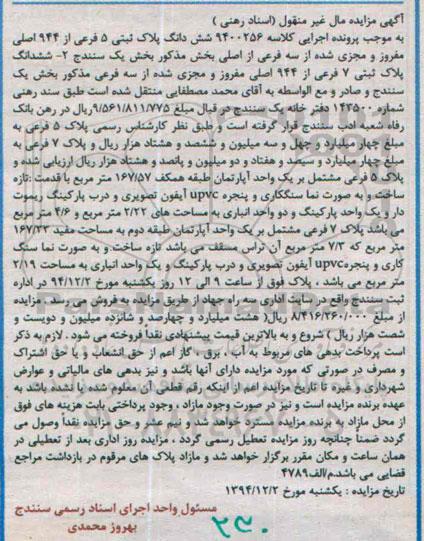 آگهی مزایده مال غیر منقول (اسناد رهنی )
به موجب پرونده اجرایی کلاسه ۹۴۰۰۲۵۶ شش دانگ پلاک ثبتی ۵ فرعی از ۹۴۴ اصلی
مفروز و مجزی شده از سه فرعی از اصلی بخش مذکور بخش یک سنندج ۲- ششدانگ
پلاک ثبتی ۷ فرعی از ۹۴۴ اصلی مفروز و مجزی شده از سه فرعی مذکور بخش یک
سنندج و صادر و مع الواسطه به آقای محمد مصطفایی منتقل شده است طبق سند رهنی
شماره ۱۴۳۵۰۰ دفتر خانه یک سنندج در قبال مبلغ ۹/۵۶۱/۸۱۱/۷۷۵ریال در رهن بانک
رفاه شعبه ادب سنندج قرار گرفته است و طبق نظر کارشناس رسمی پلاک ۵ فرعی به
مبلغ چهار میلیارد و چهل و سه میلیون و ششصد و هشتاد هزار ریال و پلاک ۷ فرعی به
مبلغ چهار میلیارد و سیصد و هفتاد و دو میلیون و پانصد و هشتاد هزار ریال ارزیابی شده و
پلاک ۵ فرعی مشتمل بر یک واحد آپارتمان طبقه همکف ۱۶۷/۵۷ متر مربع با قدمت :تازه
ساخت و به صورت نما سنگکاری و پنجره upvc آیفون تصویری و درب پارکینگ ریموت
دار و یک واحد پارکینگ و دو واحد انباری به مساحت های ۲/۲۲ متر مربع و ۴/۶ متر مربع
می باشد پلاک ۷ فرعی مشتمل بر یک واحد آپارتمان طبقه دوم به مساحت مفید ۱۶۷/۲۳
متر مربع که ۷/۳ متر مربع آن تراس مسقف می باشد تازه ساخت و به صورت نما سنگ
کاری و پنجرهupvc آیفون تصویری و درب پارکینگ و یک واحد انباری به مساحت ۲/۱۹
متر مربع می باشد ، پلاک فوق از ساعت ۹ الی ۱۲ روز یکشنبه مورخ ۹۴/۱۲/۲ در اداره
ثبت سنندج واقع در سایت اداری سه راه جهاد از طریق مزایده به فروش می رسد. مزایده
از مبلغ ۸/۴۱۶/۲۶۰/۰۰۰ ریال( هشت میلیارد و چهارصد و شانزده میلیون و دویست و
شصت هزار ریال ) شروع و به بالاترین قیمت پیشنهادی نقدا فروخته می شود . لازم به ذکر
است پرداخت بدهی های مربوط به آب ، برق ، گاز اعم از حق انشعاب و یا حق اشتراک
و مصرف در صورتی که مورد مزایده دارای آنها باشد و نیز بدهی های مالیاتی و عوارض
شهرداری و غیره تا تاریخ مزایده اعم از اینکه رقم قطعی آن معلوم شده یا نشده باشد به
عهده برنده مزایده است و نیز در صورت وجود مازاد ، وجود پرداختی بابت هزینه های فوق
از محل مازاد به برنده مزایده مسترد خواهد شد و نیم عشر و حق مزایده نقدا وصول می
گردد ضمنا چنانچه روز مزایده تعطیل رسمی گردد ، مزایده روز اداری بعد از تعطیلی در
همان ساعت و مکان مقرر برگزار خواهد شد و مازاد پلاک های مرقوم در بازداشت مراجع
قضایی می باشد.م/الف۴۷۸۹
تاریخ مزایده : یکشنبه مورخ ۱۳۹۴/۱۲/۲
مسئول واحد اجرای اسناد رسمی سنندج
بهروز محمدی